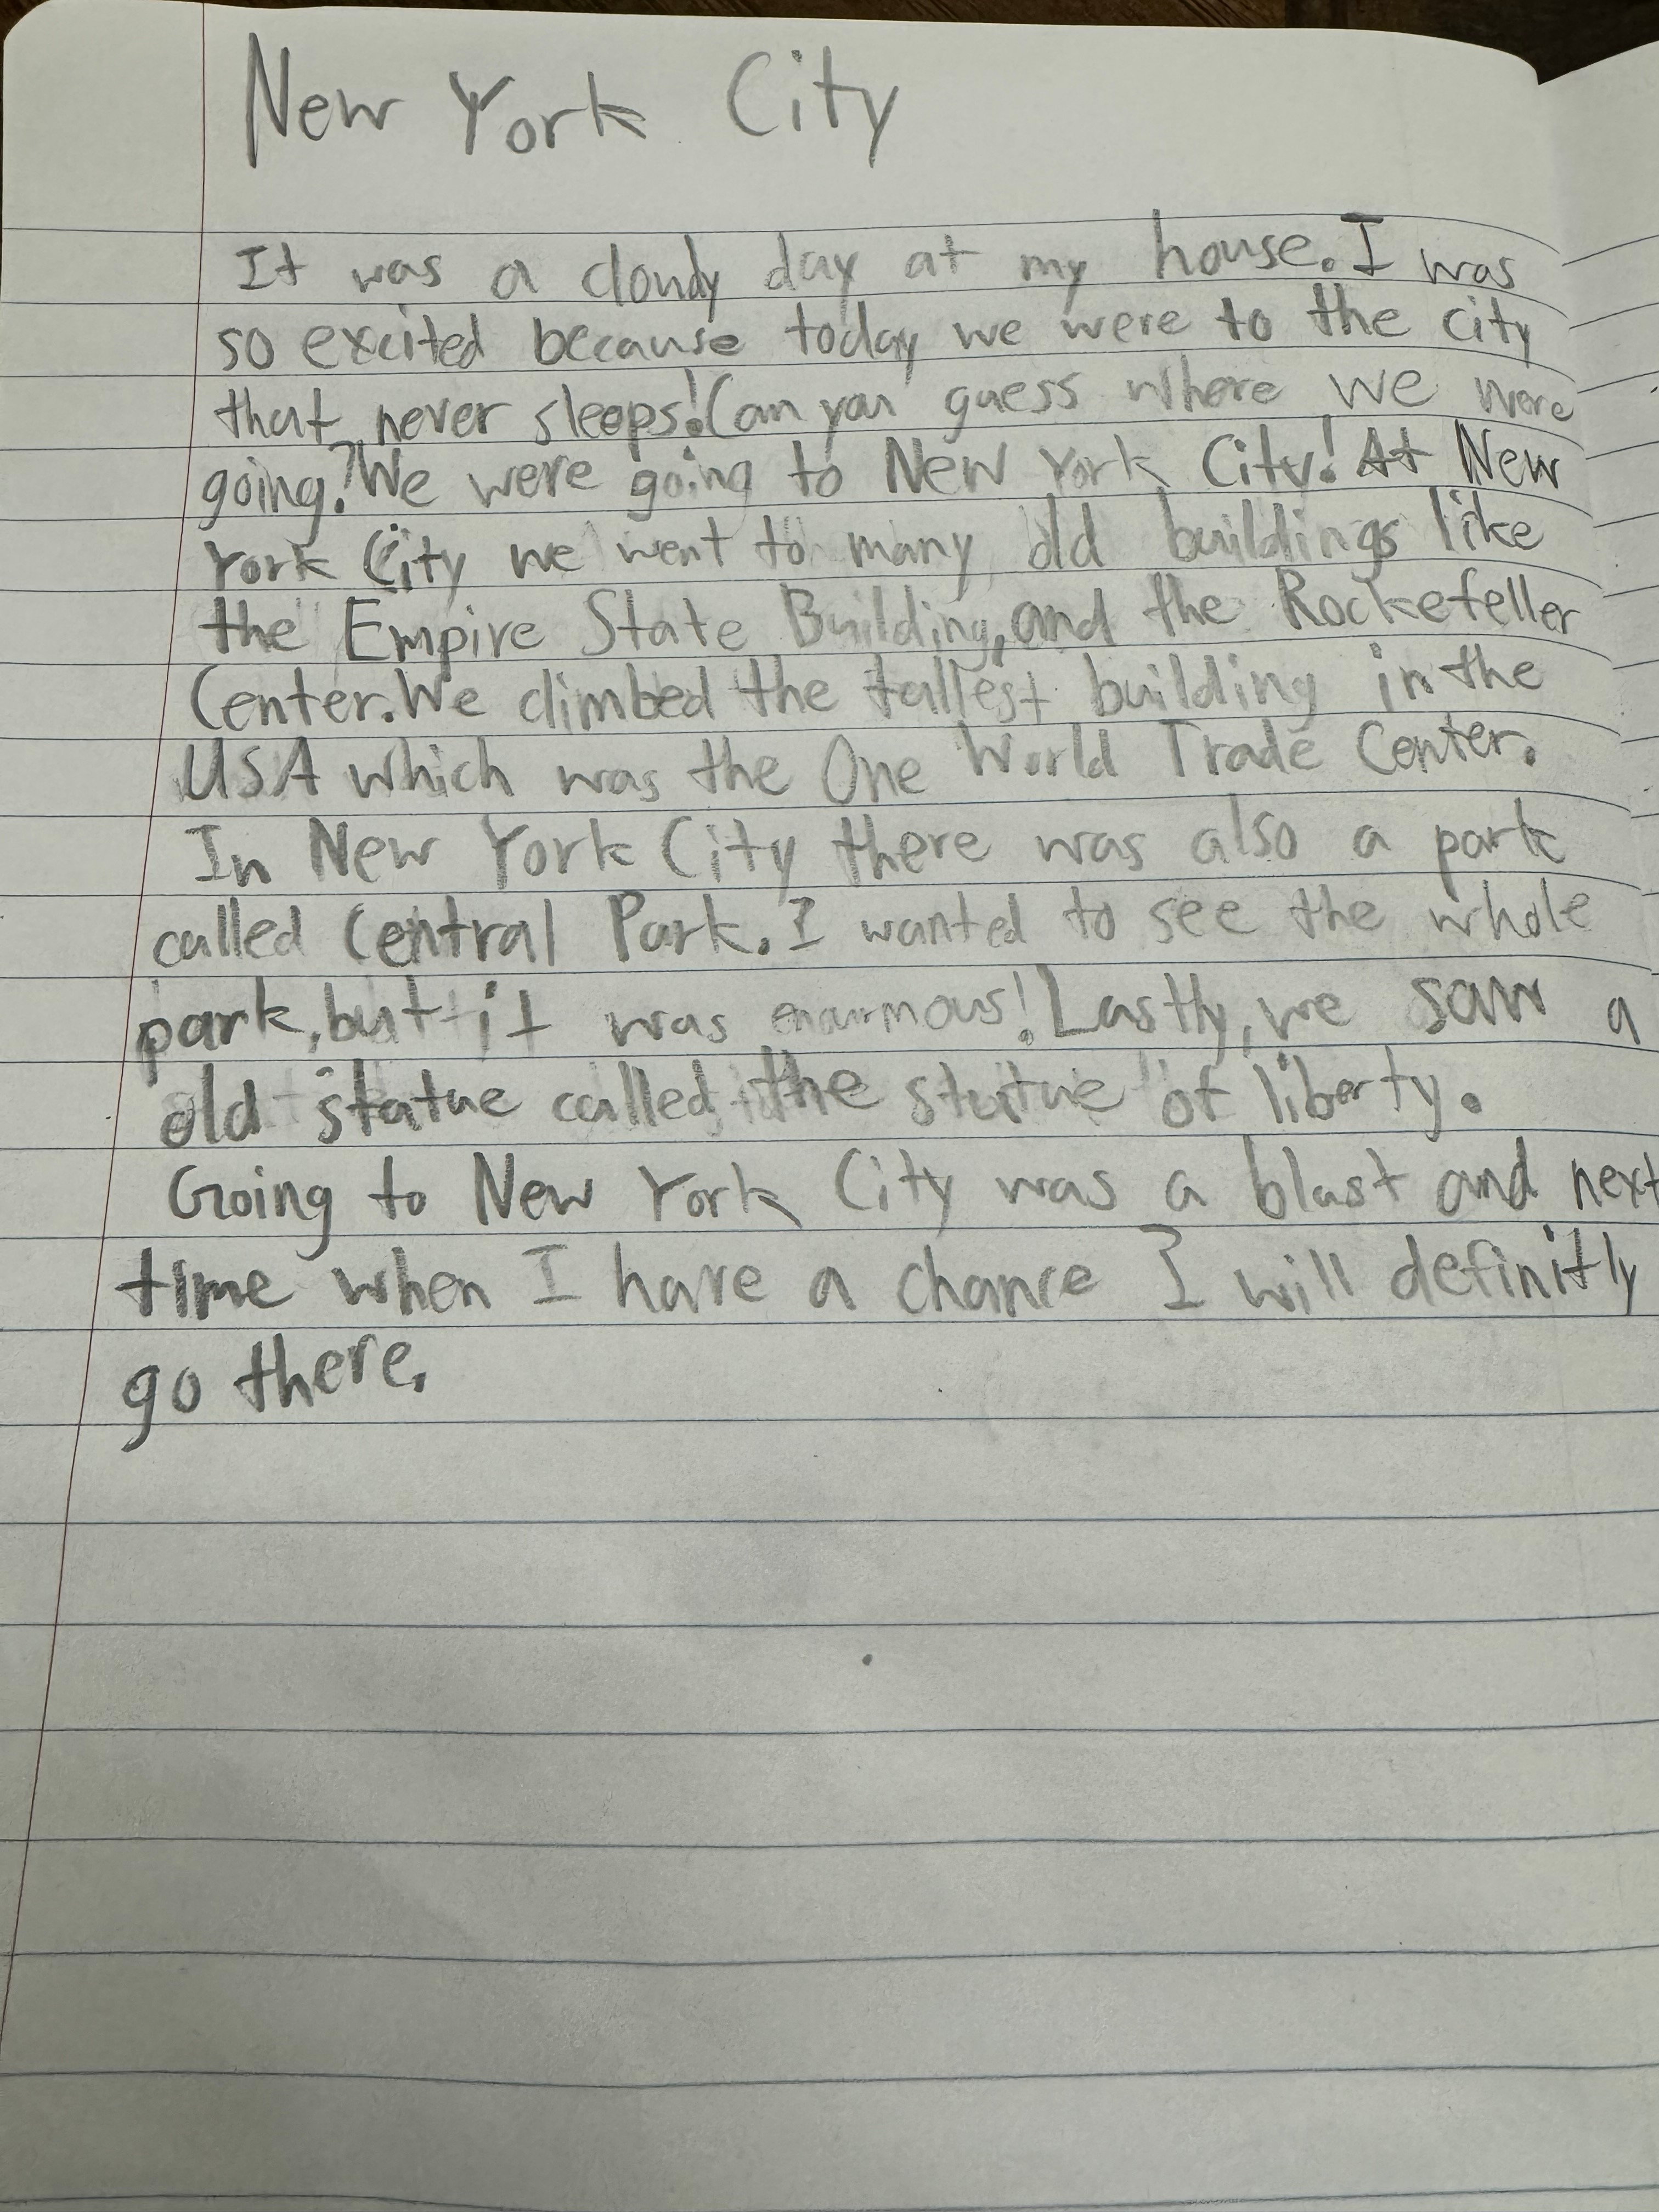 New York City
It was a cloudy day at my house. I was
so excited because today we were to the city
that never sleeps! Can you guess where we were
going? We were going to New York City! At New
York City we went to many old buildings like
the Empire State Building, and the Rockefeller
Center. We climbed the tallest building in the
USA which was the One World Trade Center.
In New York City there was also a park
called Central Park. I wanted to see the whole
park, but it was enourmous! Lastly, we saw a
old statue called the statue of liberty.
Going to New York City was a blast and next
time when I have a chance I will definitly
go there.